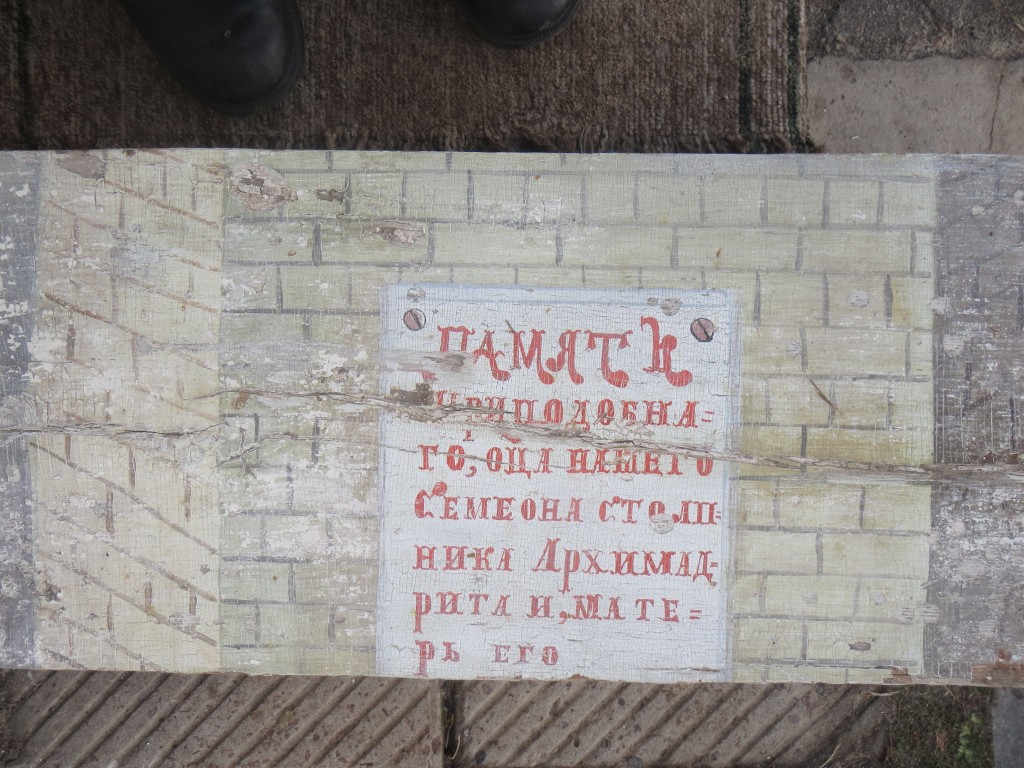 ПАМЯТЬ
ПРИПОДОБНА=
ГО, ОЦА НАШЕГО
СЕМЕОНА СТОЛП=
НИКА АРХИМАД-
РИТА И, МАТЕ=
РЬ ЕГО